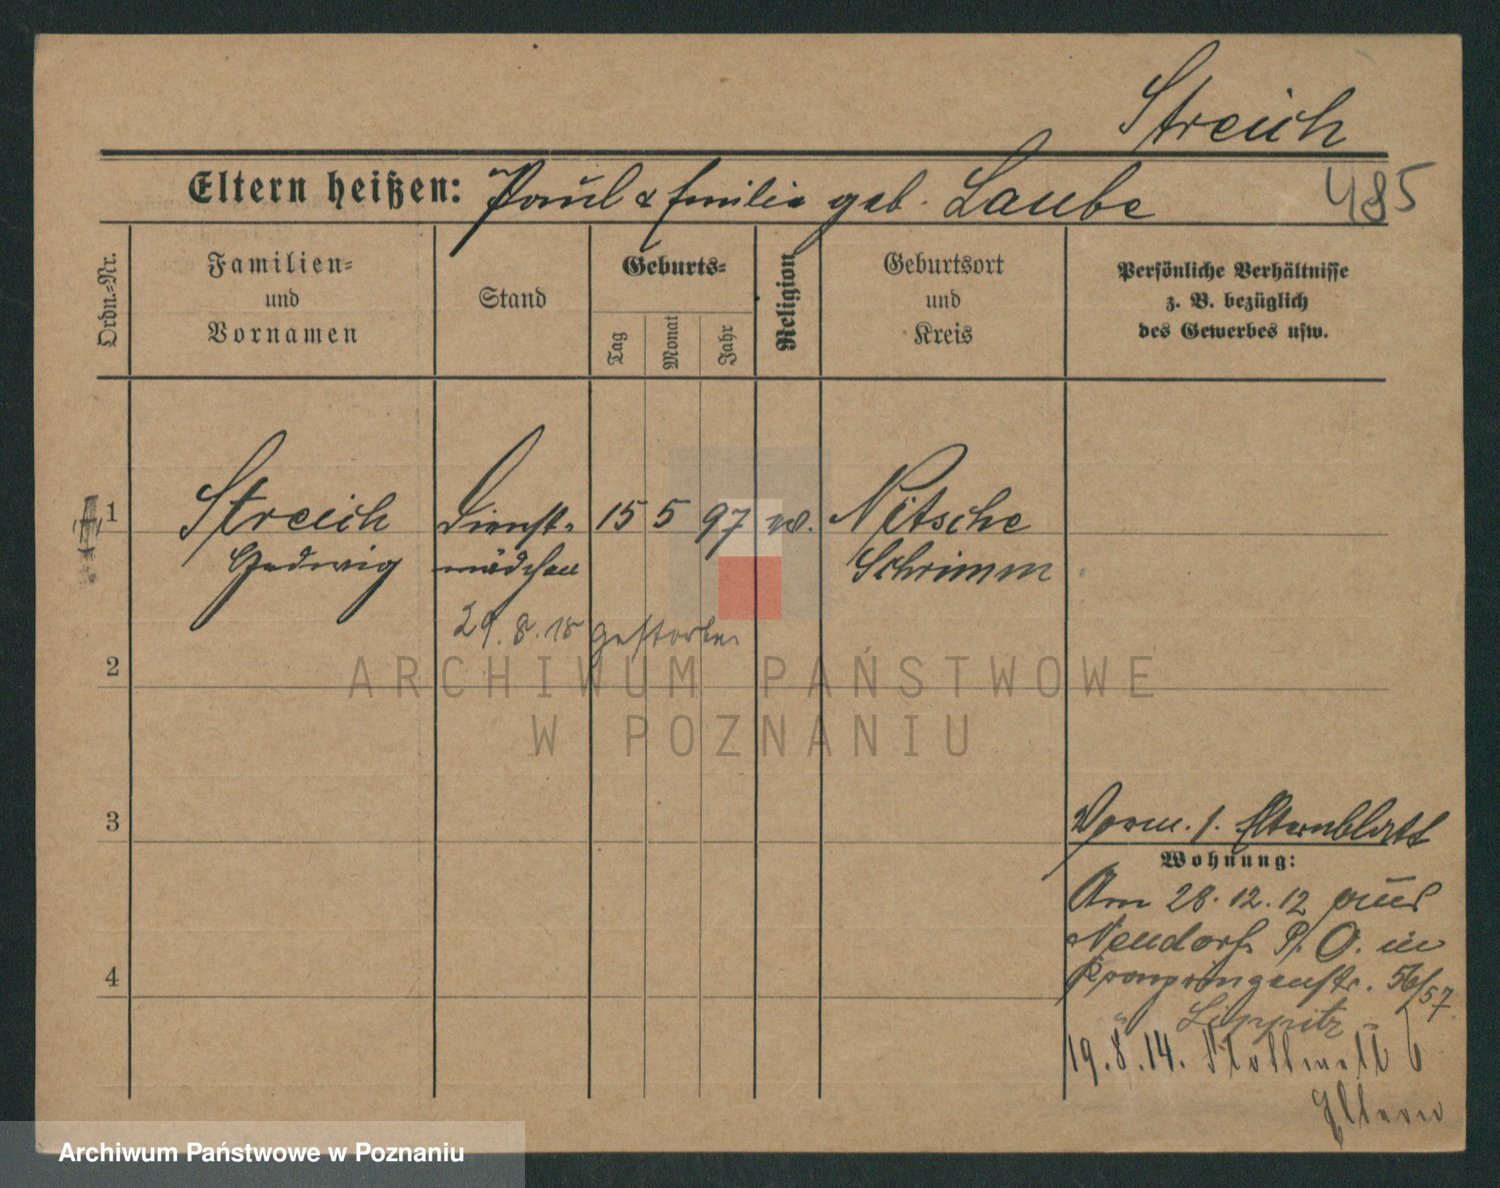 Streich
Eltern heißen: Paul & Emilie geb. Laube 485
Ordn.=Nr.
Familien=
und
Vornamen
Stand
Geburts=
Tag
Monat
Jahr
Religion
Geburtsort
und
Kreis
Persönliche Verhältnisse
z. B. bezüglich
des Gewerbes usw.
1 Streich Dienst- 15 5 97 w. Nitsche
Hedwig mädchen Schrimm
29.8.18 gestorben
2
3
4
Vorm. s. Elternblatt
Wohnung:
Am 28.12.12 aus
Neudorf P. O. in
Kronprinzenstr. 56/57
" Lippitz -
19.8.14. 6
Eltern
ARCHIWUM PAŃSTWOWE
W POZNANIU
Archiwum Państwowe w Poznaniu